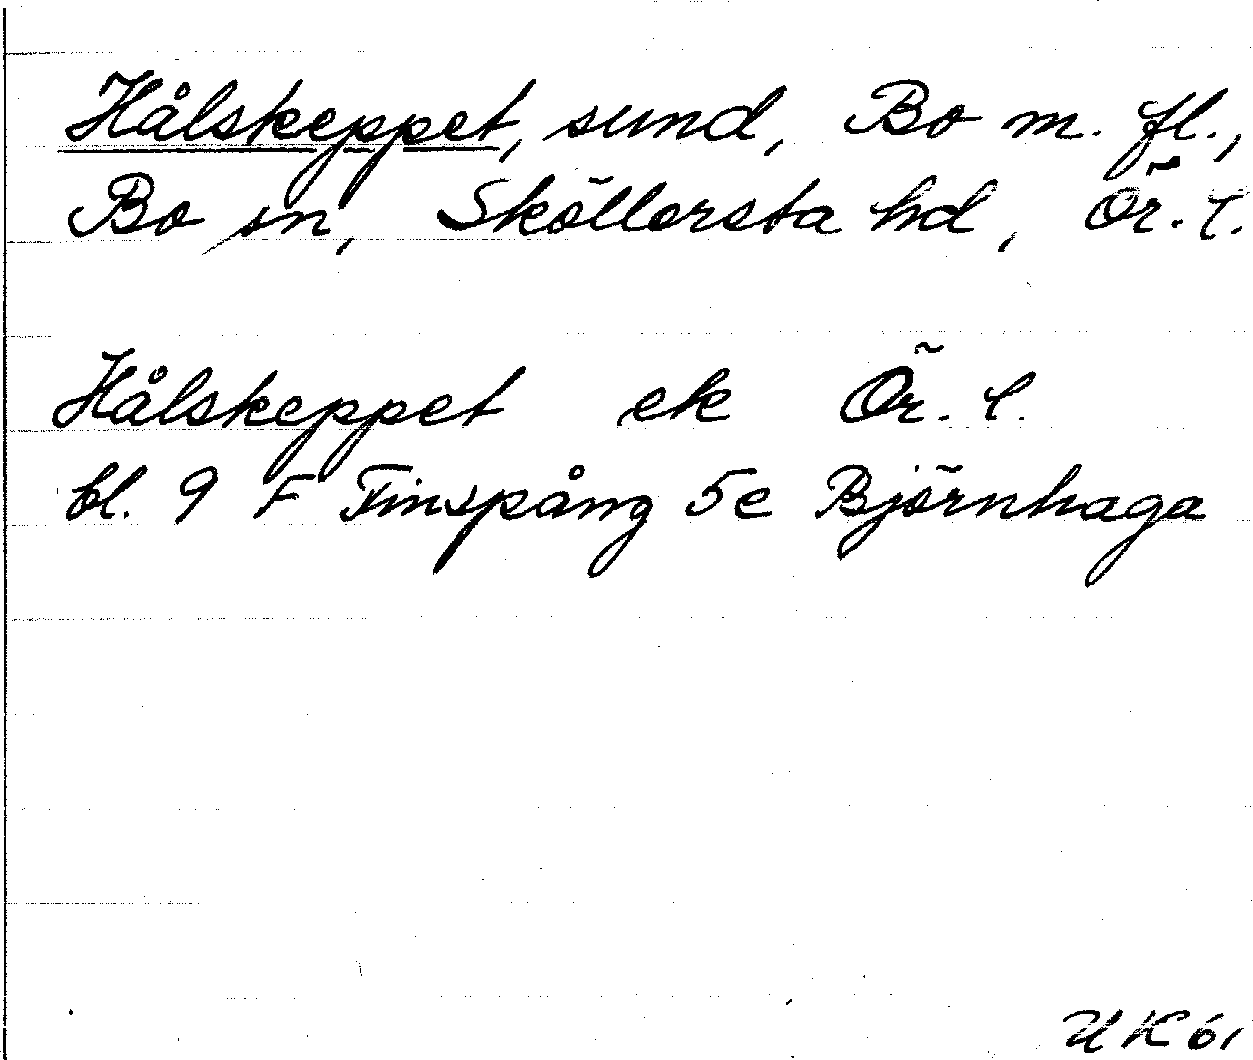 Hålskeppet, sund, Bo m. fl.,
Bo sn, Sköllersta hd, Ör. l.
Hålskeppet ek Ör. l.
bl. 9 F Finspång 5e Björnhaga
UK 61